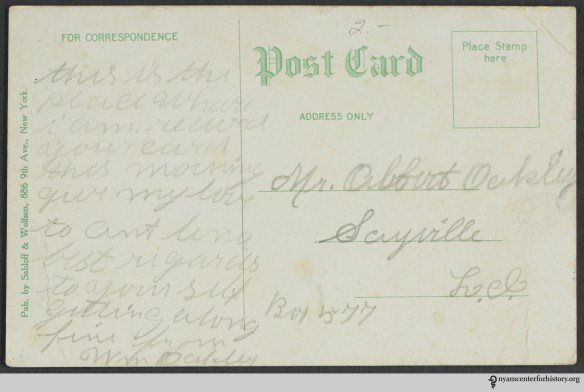 2.-
FOR CORRESPONDENCE
Post Card
Place Stamp
here
ADDRESS ONLY
this is the
place where
i am. recived
your card
this morning
give my love
to ant
best regards
to your self
getting along
fine from
Wm Oakley
Mr. Abbert Oakley
Sayville
L.I.
Box 577
Pub. by Sabloff & Wolbon, 686 9th Ave., New York.
nyamcenterforhistory.org